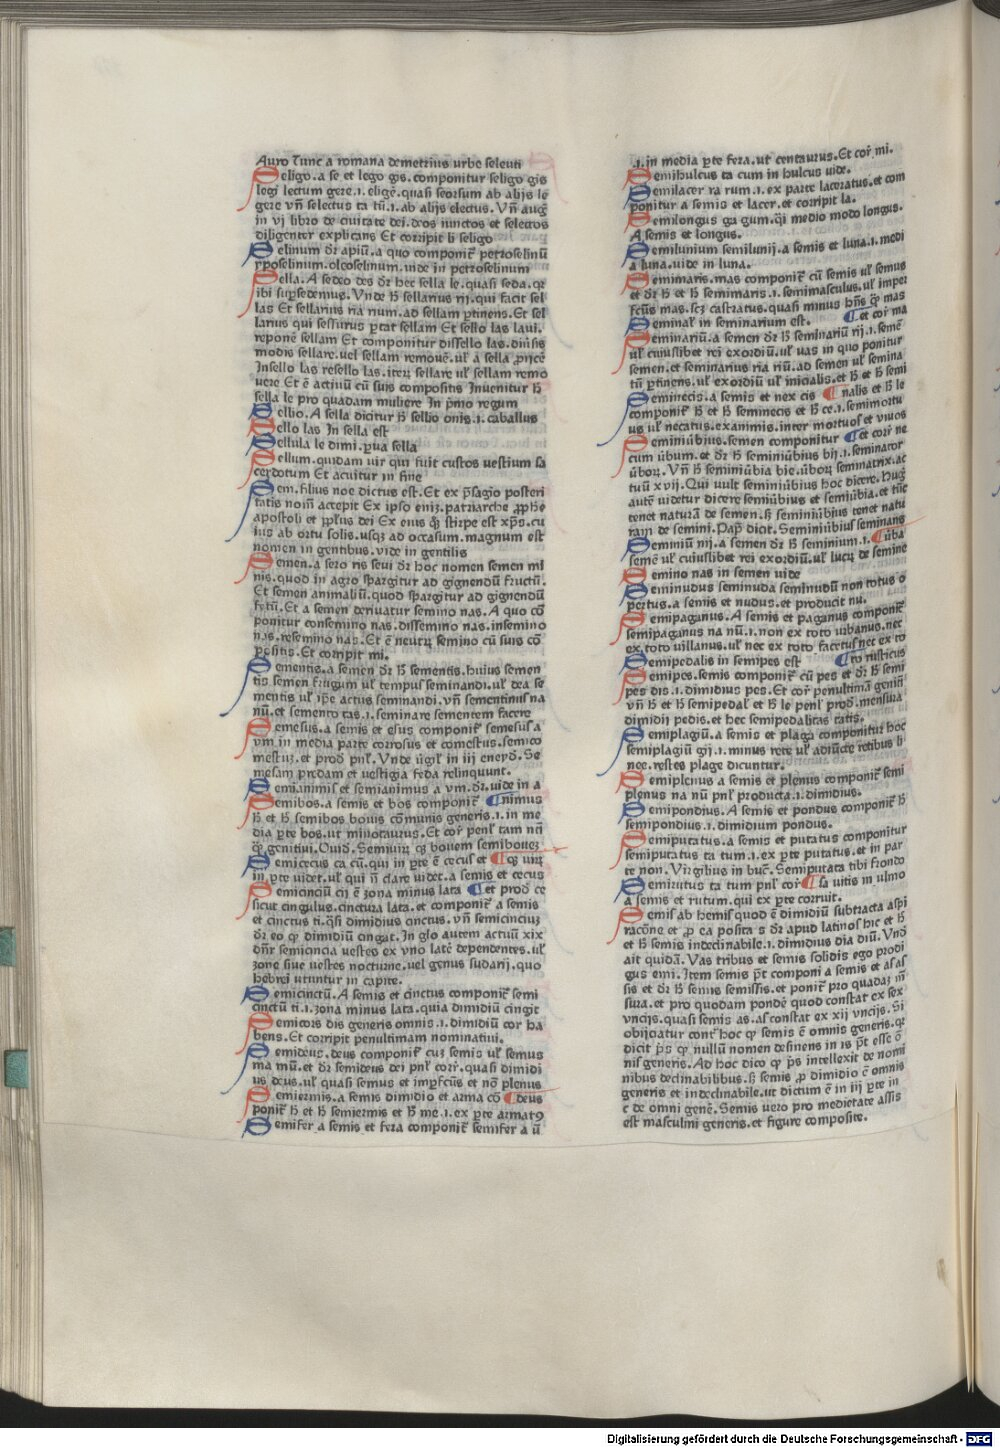 Auro Tunc a romana demetrius urbe seleuti
Seligo.a se et lego gis. componitur seligo gis
legi lectum gere.i.eligē.quasi seorsum ab alijs le
gere vn̄ selectus ta tū.i.ab alijs electus. Vn̄ aug̃
in vij libro de ciuitate dei.deos iunctos et selectos
diligenter explicans Et corripit li seligo
Selinum dr̄ apiū.a quo componit̃ petroselinū
yposelinum.oleoselinum.uide in petroselinum
Sella. A sedeo des dr̄ hec sella le.quasi seda.qr
ibi sup̱sedemus. Vnde ħ sellarius rij.qui facit sel
las Et sellarius ria rium.ad sellam p̱tinens.Et sel
larius qui sessurus p̱tat sellam Et sello las laui.
reponē sellam Et componitur dissello las.diūsis
modis sellare.uel sellam remouē.ul̃ a sella ꝓicē
Insello las resello las.iteꝝ sellare ul̃ sellam remo
uere Et ē actiuū cū suis compositis Inuenitur ħ
sella le pro quadam muliere In p̄mo regum
Sellio. A sella dicitur ħ sellio onis.i.caballus
Sello las In sella est
Sellula le dimi.p̱ua sella
Sellum.quidam uir qui fuit custos uestium sa
cerdotum Et acuitur in fine
Sem.filius noe dictus est.Et ex p̄sagio posteri
tatis nom̄ accepit Ex ipso eniꝫ.patriarche ꝓphe
apostoli et ꝓplus dei Ex eius qꝫ stirpe est xp̄s.cu
ius ab ortu solis.usqꝫ ad occasum.magnum est
nomen in gentibus.vide in gentilis
Semen.a sero ris seui dr̄ hoc nomen semen mi
nis.quod in agro sp̱argitur ad gignendū fructū.
Et semen animaliū.quod sp̱argitur ad gignendū
fetū.Et a semen deriuatur semino nas. A quo cō
ponitur consemino nas.dissemino nas.insemino
nas.resemino nas.Et ē neutꝝ semino cū suis cō
positis.Et corripit mi.
Sementis.a semen dr̄ ħ sementis.huius semen
tis semen frugum ul̃ tempus seminandi.ul̃ dea se
mentis ul̃ ip̄e actus seminandi.vn̄ sementinus na
nū.et semento tas.i.seminare sementem facere
Semesus.a semis et esus componit̃ semesus a
vm in media parte corrosus et comestus.semico
mestus.et prod̄ pnl̃. Vnde ũgil̃ in iij eneyd̄. Se
mesam predam et uestigia feda relinquunt.
Semianimis et semianimus a vm.dr̄.uide in a
Semibos.a semis et bos componit̃ ¶nimus
ħ et ħ semibos bouis cōmunis generis.i.in me
dia p̱te bos.ut minotaurus.Et cor̄ penl̃ tam nt̄i
q̄ꝫ genitiui.Ouid̄. Semiuirꝫ qꝫ bouem semibouēꝫ
Semicecus ca cū.qui in p̱te ē cecus et ¶qꝫ uirꝫ
in p̱te uidet.ul̃ qui n̄ clare videt.a semis et cecus
Semicinciū cij ē ʒona minus lata ¶et prod̄ ce
sicut cingulus.cinctura lata.et componit̃ a semis
et cinctus ti.q̄si dimidius cinctus.vn̄ semicinciuꝫ
dr̄ eo ꝙ dimidiū cingat. In glo autem actuū xix
dn̄r semicincia uestes ex vno latē dependentes.ul̃
ʒone siue uestes nocturne.uel genus sudarij.quo
hebrei utuntur in capite.
Semicinctū. A semis et cinctus componit̃ semi
cinctū ti.i.ʒona minus lata.quia dimidiū cingit
Semicors dis generis omnis.i.dimidiū cor ha
bens.Et corripit penultimam nominatiui.
Semideus.deus componit̃ cuꝫ semis ul̃ semus
ma mū.et dr̄ semideus dei pnl̃ cor̄.quasi dimidi
us deus.ul̃ quasi semus et imp̱fc̄us et nō plenus
Semiermis.a semis dimidio et arma cō ¶deus
ponit̃ ħ et ħ semiermis et ħ me.i.ex p̱te armatꝰ
Semifer a semis et fera componit̃ semifer a ū
.i.in media p̱te fera.ut centaurus.Et cor̄ mi.
Semihulcus ca cum in hulcus uide.
Semilacer ra rum.i.ex parte laceratus.et com
ponitur a semis et lacer.et corripit la.
Semilongus ga gum.q̄i medio modo longus.
A semis et longus.
Semilunium semilunij.a semis et luna.i.medi
a luna.uide in luna.
Semimaris.mas componit̃ cū semis ul̃ semus
et dr̄ ħ et ħ semimaris.i.semimasculus.ul̃ imper
fc̄us mas.scꝫ castratus.quasi minus hn̄s q̄ꝫ mas
Seminar̄ in seminarium est. ¶et cor̄ ma
Seminariū.a semen dr̄ ħ seminariū rij.i.semē
ul̃ cuiuslibet rei exordiū.ul̃ uas in quo ponitur
semen.et seminarius ria riū.ad semen ul̃ semina
tū p̱tinens.ul̃ exordiū ul̃ inicialis.et ħ et ħ semi
Seminecis.a semis et nex cis ¶nalis et ħ le
componit̃ ħ et ħ seminecis et ħ ce.i.semimortu
us ul̃ necatus.exanimis.inter mortuos et viuos
Seminiūbius.semen componitur ¶et cor̄ ne
cum ūbum.et dr̄ ħ seminiūbius bij.i.seminator
ūboꝝ. Vn̄ ħ seminiūbia bie.ūboꝝ seminatrix.ac
tuū xvij. Qui uult seminiūbius hoc dicere. Hug̃
autē uidetur dicere semiūbius et semiūbia.et tūc
tenet naturā de semen.sꝫ seminiūbius tenet natu
ram de semini. Pap̄ dicit. Seminiūbius seminans
Seminiū nij.a semen dr̄ ħ seminium.i. ¶ūba
semē ul̃ cuiuslibet rei exordiū.ul̃ lucꝝ de semine
Semino nas in semen uide
Seminudus seminuda seminudū non totus o
p̱tus.a semis et nudus.et producit nu.
Semipaganus. A semis et paganus componit̃
semipaganus na nū.i.non ex toto urbanus.nec
ex toto uillanus.ul̃ nec ex toto facetus nec ex to
Semipedalis in semipes est ¶to rusticus
Semipes.semis componit̃ cū pes et dr̄ ħ semi
pes dis.i.dimidius pes.Et cor̄ penultimā genit̄i
vn̄ ħ et ħ semipedal̃ et ħ le penl̃ prod̄.mensura
dimidij pedis.et hec semipedalitas tatis.
Semiplagiū.a semis et plaga componitur hoc
semiplagiū gij.i.minus rete ul̃ adiūcte retibus li
nee.restes plage dicuntur.
Semiplenus a semis et plenus componit̃ semi
plenus na nū pnl̃ producta.i.dimidius.
Semipondius. A semis et pondus componit̃ ħ
semipondius.i.dimidium pondus.
Semiputatus.a semis et putatus componitur
semiputatus ta tum.i.ex p̱te putatus.et in par
te non. Virgilius in buc̄. Semiputata tibi frondo
Semirutus ta tum pnl̃ cor̄ ¶sa uitis in ulmo
a semis et rutum.qui ex p̱te corruit.
Semis ab hemis quod ē dimidiū subtracta aspi
racōne et ꝓ ea posita s dr̄ apud latinos hic et ħ
et ħ semis indeclinabile.i.dimidius dia diū. Vnd̄
ait quidā. Vas tribus et semis solidis ego prodi
gus emi. Item semis p̄t componi a semis et as as
sis et dr̄ ħ semis semissis.et ponit̃ pro quadaꝫ m̄
sura.et pro quodam pondē quod constat ex sex
vncijs.quasi semis as.as constat ex xij vncijs. Si
obijciatur cont̄ hoc ꝙ semis ē omnis generis.qr
dicit p̄s ꝙ nullū nomen desinens in is p̄t esse ō
nis generis. Ad hoc dico ꝙ p̄s intellexit de nomi
nibus declinabilibus.sꝫ semis ꝓ dimidio ē omnis
generis et indeclinabile.ut dictum ē in iij p̱te in
c de omni genē. Semis uero pro medietate assis
est masculini generis.et figure composite.
Digitalisierung gefördert durch die Deutsche Forschungsgemeinschaft - DFG